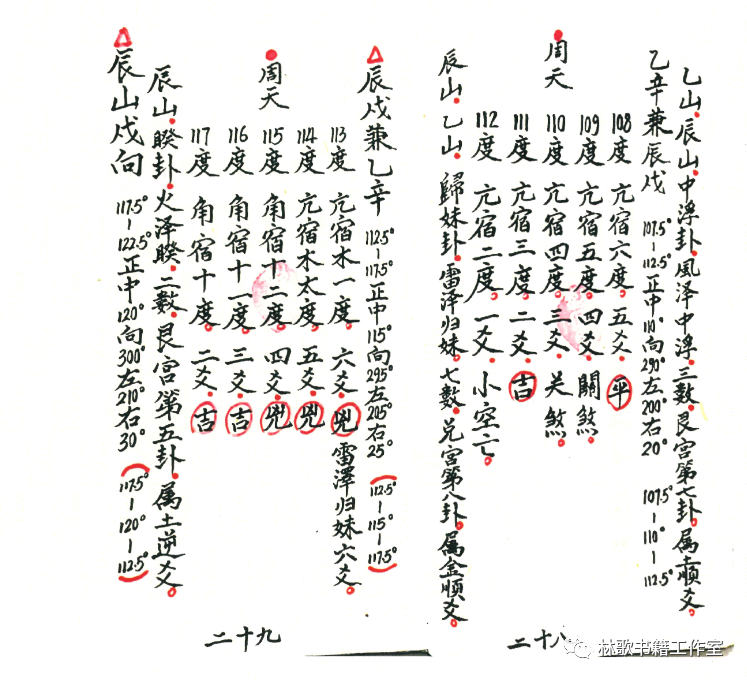 乙山.辰山.中浮卦.風泽中浮.三数.艮宫第七卦.属土順爻。
乙辛兼辰戌 107.5°-112.5°正中110°向290°左200°右20° 107.5°-110°-112.5°
周天
108度 亢宿六度。五爻.平
109度 亢宿五度。四爻.關煞。
110度 亢宿四度。三爻.关煞。
111度 亢宿三度。二爻.吉
112度 亢宿二度。一爻.小空亡。
辰山.乙山.歸妹卦.雷泽归妹.七數.兑宫第八卦.属金順爻。
二十八
辰戌兼乙辛 112.5°-117.5°正中115°向295°左205°右25° (112.5°-115°-117.5°)
周天
113度 亢宿木一度。六爻.兇 雷澤归妹六爻。
114度 亢宿木太度。五爻.兇
115度 角宿十二度。四爻.兇
116度 角宿十一度。三爻.吉
117度 角宿十度。二爻.吉
辰山.睽卦.火泽睽.二数.艮宫第五卦.属土逆爻。
辰山戌向 117.5°-122.5°正中120°向300°左210°右30° (117.5°-120°-112.5°)
二十九
林歌书籍工作室